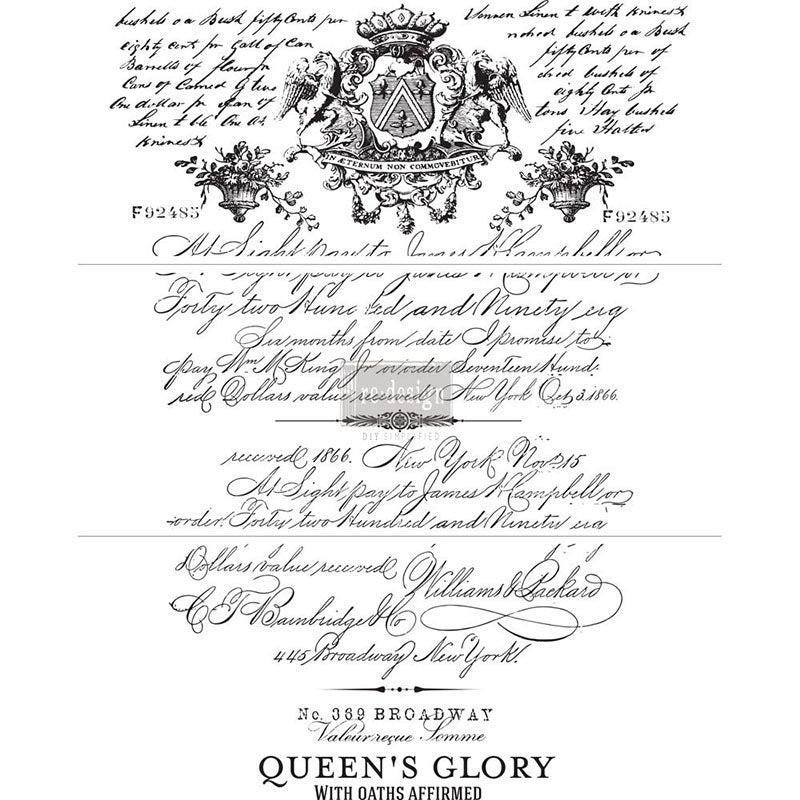 bushels oa Bush fifty Cents per
eighty cent pr Gall of Can
Barrells of flour pr
Cans of Carned G two
One dollar pr
Linen t ble One At
kninestx
Vennen Linen t with kninestx
nohed bushels oa Bush
fifty Cents per of
ched bushels of
eighty Cent pr
tons Hay bushels
five Halter
IN ÆTERNUM NON COMMOVEBITUR
F92485
F92485
At Sight pay to James W Campbell or
Forty two Hundred and Ninety eig
Six months from date I promise to
pay Wm M King Jr or order Seventeen Hund.
red Dollars value received New York Oct 3, 1866.
re·design
DIY SIMPLIFIED
received 1866. New York Nov. 15
At Sight pay to James W Campbell or
order. Forty two Hundred and Ninety eig
Dollars value received Williams & Packard
C. T. Bainbridge & Co
445 Broadway New York.
No. 369 BROADWAY
Valeur reçue Somme
QUEEN'S GLORY
WITH OATHS AFFIRMED